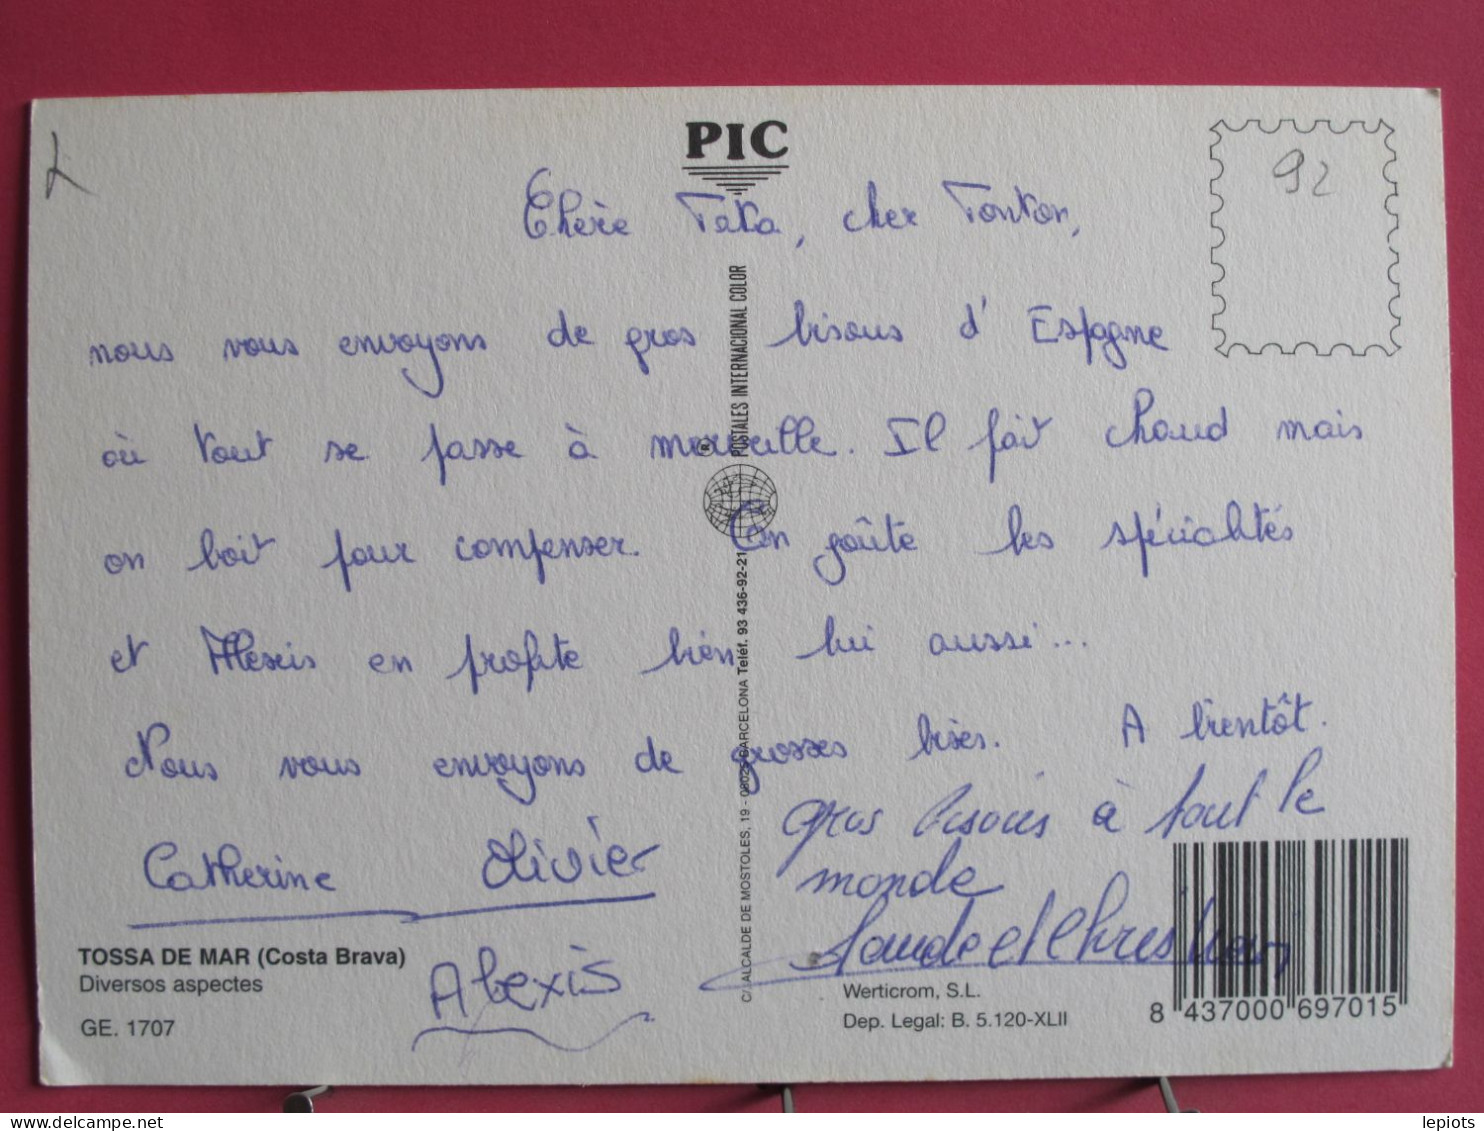 PIC
92
Chère Tata, cher Tonton,
nous vous envoyons de gros bisous d'Espagne
où tout se passe à merveille. Il fait chaud mais
on boit pour compenser. On goûte les spécialités
et Alexis en profite bien lui aussi...
Nous vous envoyons de grosses bises. A bientôt.
gros bisous à tout le
monde
Catherine Olivier
Alexis
Claude et Christian
TOSSA DE MAR (Costa Brava)
Diversos aspectes
GE. 1707
C/. ALCALDE DE MOSTOLES, 19 - 08025 BARCELONA Teléf. 93 436-92-21 ® POSTALES INTERNACIONAL COLOR
Werticrom, S.L.
Dep. Legal: B. 5.120-XLII
8 437000 697015
lepiots